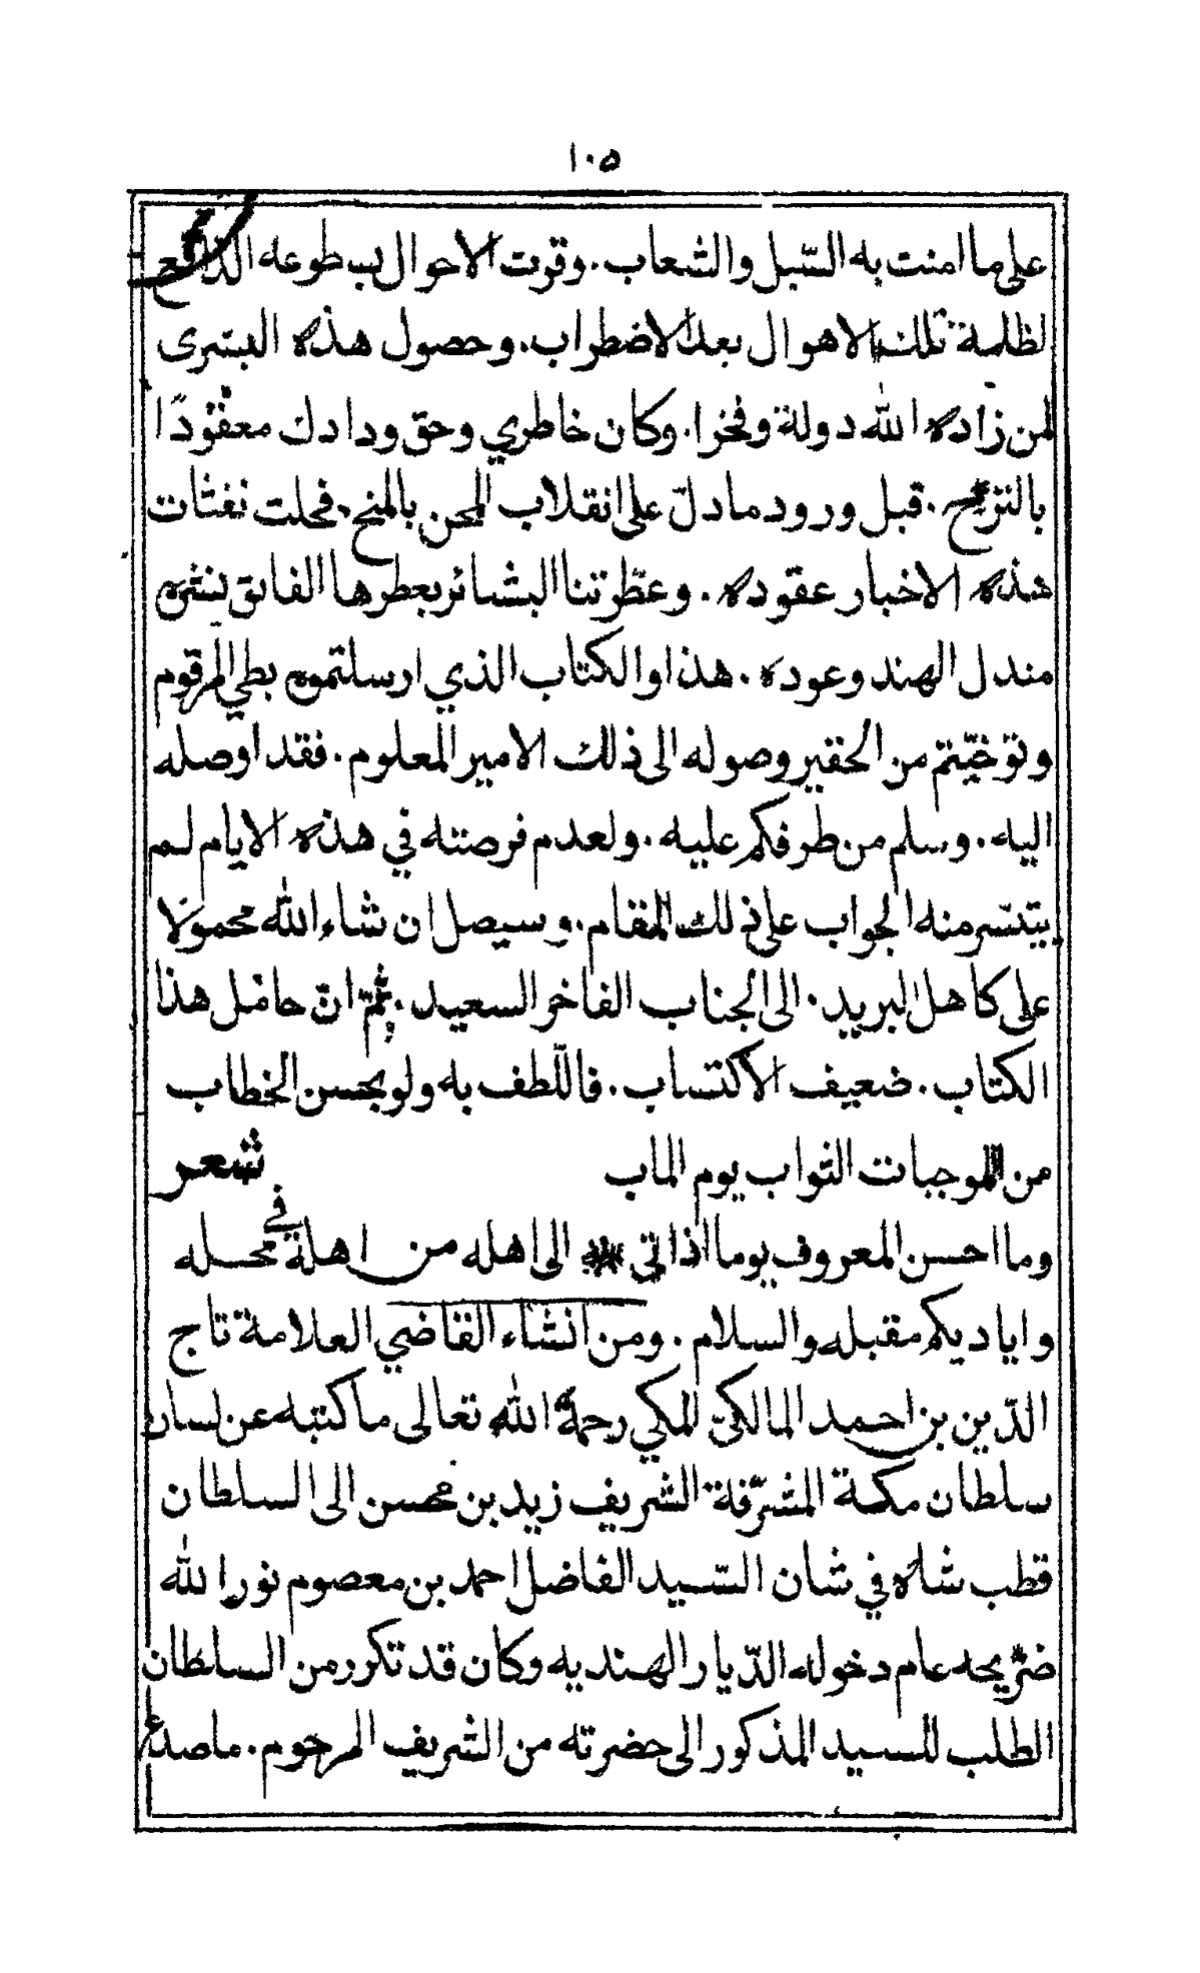 ١٠٥
على ما امنت به السّبل والشعاب. وقوت الاحوال بسطوعه الدافع
لظلمة تلك الاهوال بعد الاضطراب. وحصول هذه البشرى
لمن زاده الله دولة وفخرا. وكان خاطري وحق ودادك معقودًا
بالترح. قبل ورود ما دلّ على انقلاب المحن بالمنح. فحلت نفثات
هذه الاخبار عقوده. وعطّرتنا البشائر بعطرها الفائق بنشره
مندل الهند وعوده. هذا والكتاب الذي ارسلتموه بطي المرقوم
وتوخيّتم من الحقير وصوله الى ذلك الامير المعلوم. فقد اوصله
اليه. وسلم من طرفكم عليه. ولعدم فرصته في هذه الايام لم
يتيسّر منه الجواب على ذلك المقام. وسيصل ان شاء الله محمولا
على كاهل البريد. الى الجناب الفاخر السعيد. ثمّ انّ حامل هذا
الكتاب. ضعيف الاكتساب. فاللّطف به ولو بحسن الخطاب
من الموجبات الثواب يوم الماب شعر
وما احسن المعروف يوما اذا اتي الى اهله من اهله في محله
واياديكم مقبله والسلام. ومن انشاء القاضي العلامة تاج
الدّين بن احمد المالكي المكي رحمه الله تعالى ما كتبه عن لسان
سلطان مكة المشرّفة الشريف زيد بن محسن الى السلطان
قطب شاه في شان السّيد الفاضل احمد بن معصوم نور الله
ضريحه عام دخوله الدّيار الهنديه وكان قد تكرر من السلطان
الطلب للسيد المذكور الى حضرته من الشريف المرحوم. ما صدع